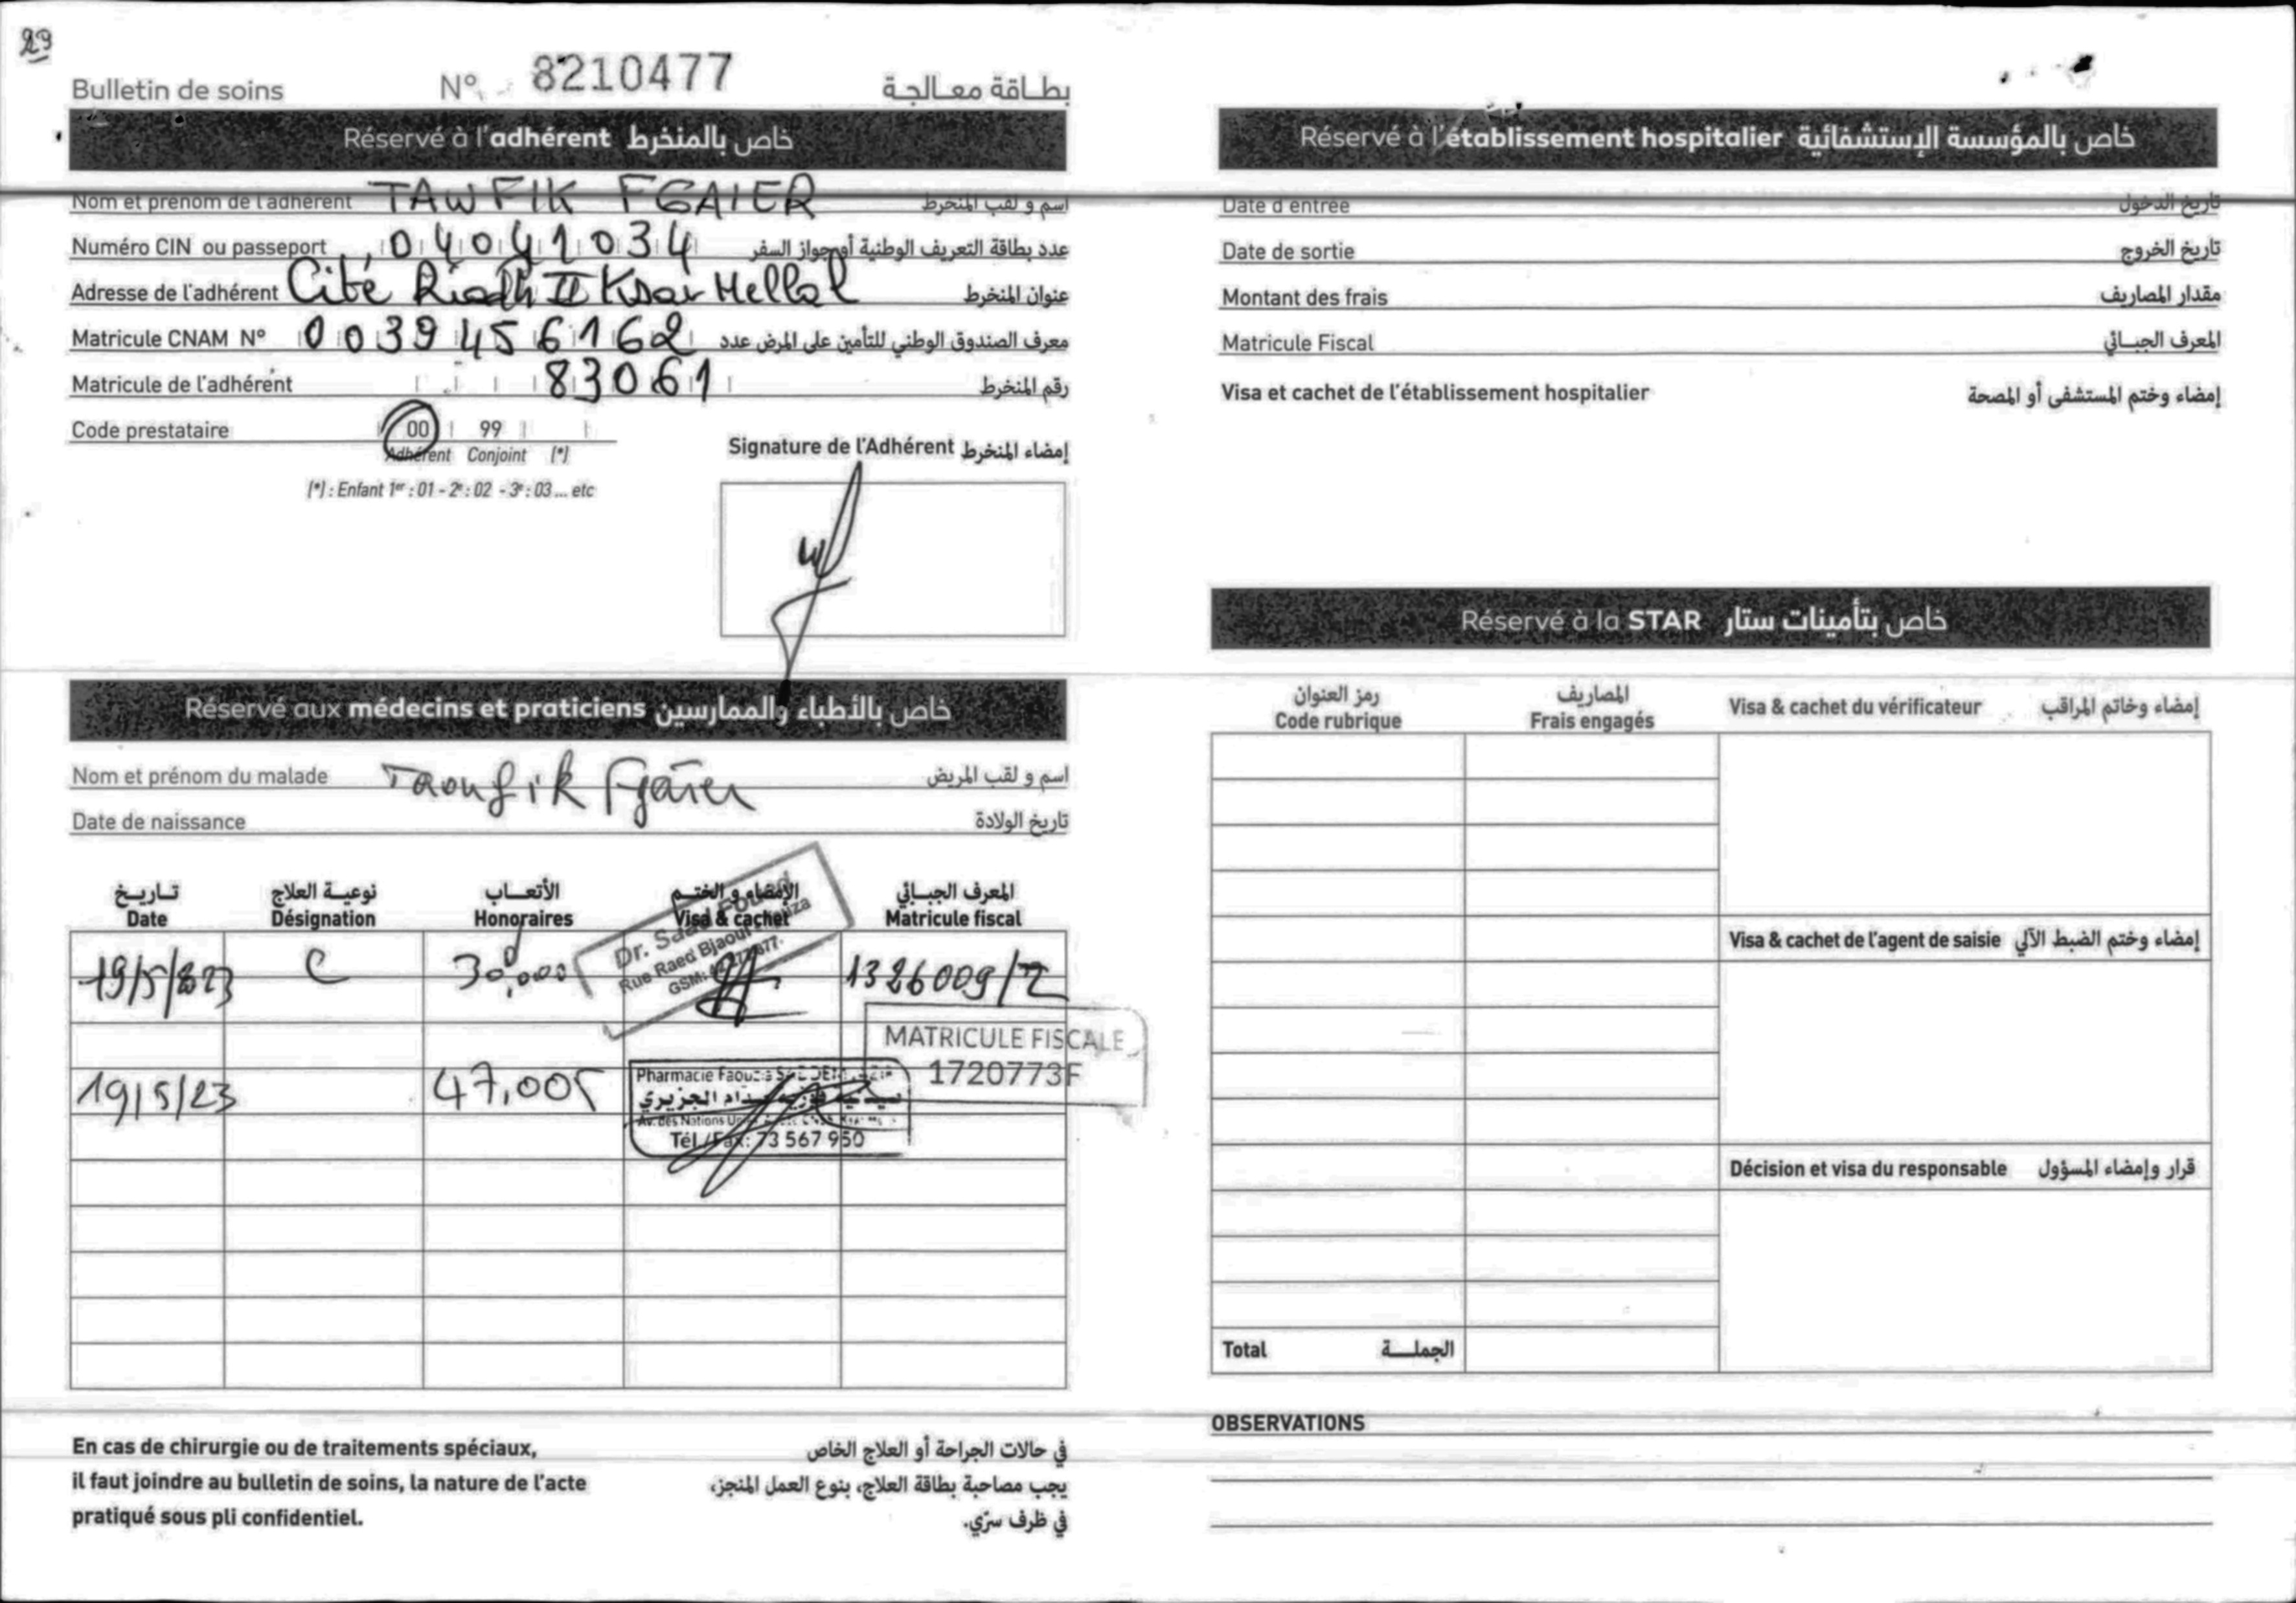 29
Bulletin de soins N° 8210477 بطاقة معالجة
Réservé à l'adhérent خاص بالمنخرط
Nom et prénom de l'adhérent TAWFIK FGAIER اسم و لقب المنخرط
Numéro CIN ou passeport 04041034 عدد بطاقة التعريف الوطنية أو جواز السفر
Adresse de l'adhérent Cité Riadh II Ksar Hellal عنوان المنخرط
Matricule CNAM N° 0039456162 معرف الصندوق الوطني للتأمين على المرض عدد
Matricule de l'adhérent 83061 رقم المنخرط
Code prestataire 00 99
Adhérent Conjoint (*)
(*) : Enfant 1er : 01 - 2e : 02 - 3e : 03 ... etc
Signature de l'Adhérent إمضاء المنخرط
Réservé aux médecins et praticiens خاص بالأطباء والممارسين
Nom et prénom du malade Taoufik Fgaïer اسم و لقب المريض
Date de naissance تاريخ الولادة
تاريخ نوعية العلاج الأتعاب الإمضاء و الختم المعرف الجبائي
Date Désignation Honoraires Visa & cachet Matricule fiscal
Dr.
Rue Raed Bjaoui
GSM:
19/5/2023 C 30,000 1326009/Z
MATRICULE FISCALE
1720773F
19/5/23 47,005
Pharmacie
الجزيري
Av. des Nations
Tél./Fax: 73 567 950
En cas de chirurgie ou de traitements spéciaux,
il faut joindre au bulletin de soins, la nature de l'acte
pratiqué sous pli confidentiel.
في حالات الجراحة أو العلاج الخاص
يجب مصاحبة بطاقة العلاج، بنوع العمل المنجز،
في ظرف سرّي.
Réservé à l'établissement hospitalier خاص بالمؤسسة الإستشفائية
Date d'entrée تاريخ الدخول
Date de sortie تاريخ الخروج
Montant des frais مقدار المصاريف
Matricule Fiscal المعرف الجبائي
Visa et cachet de l'établissement hospitalier إمضاء وختم المستشفى أو المصحة
Réservé à la STAR خاص بتأمينات ستار
رمز العنوان المصاريف
Code rubrique Frais engagés Visa & cachet du vérificateur إمضاء وخاتم المراقب
Visa & cachet de l'agent de saisie إمضاء وختم الضبط الآلي
Décision et visa du responsable قرار وإمضاء المسؤول
Total الجملة
OBSERVATIONS